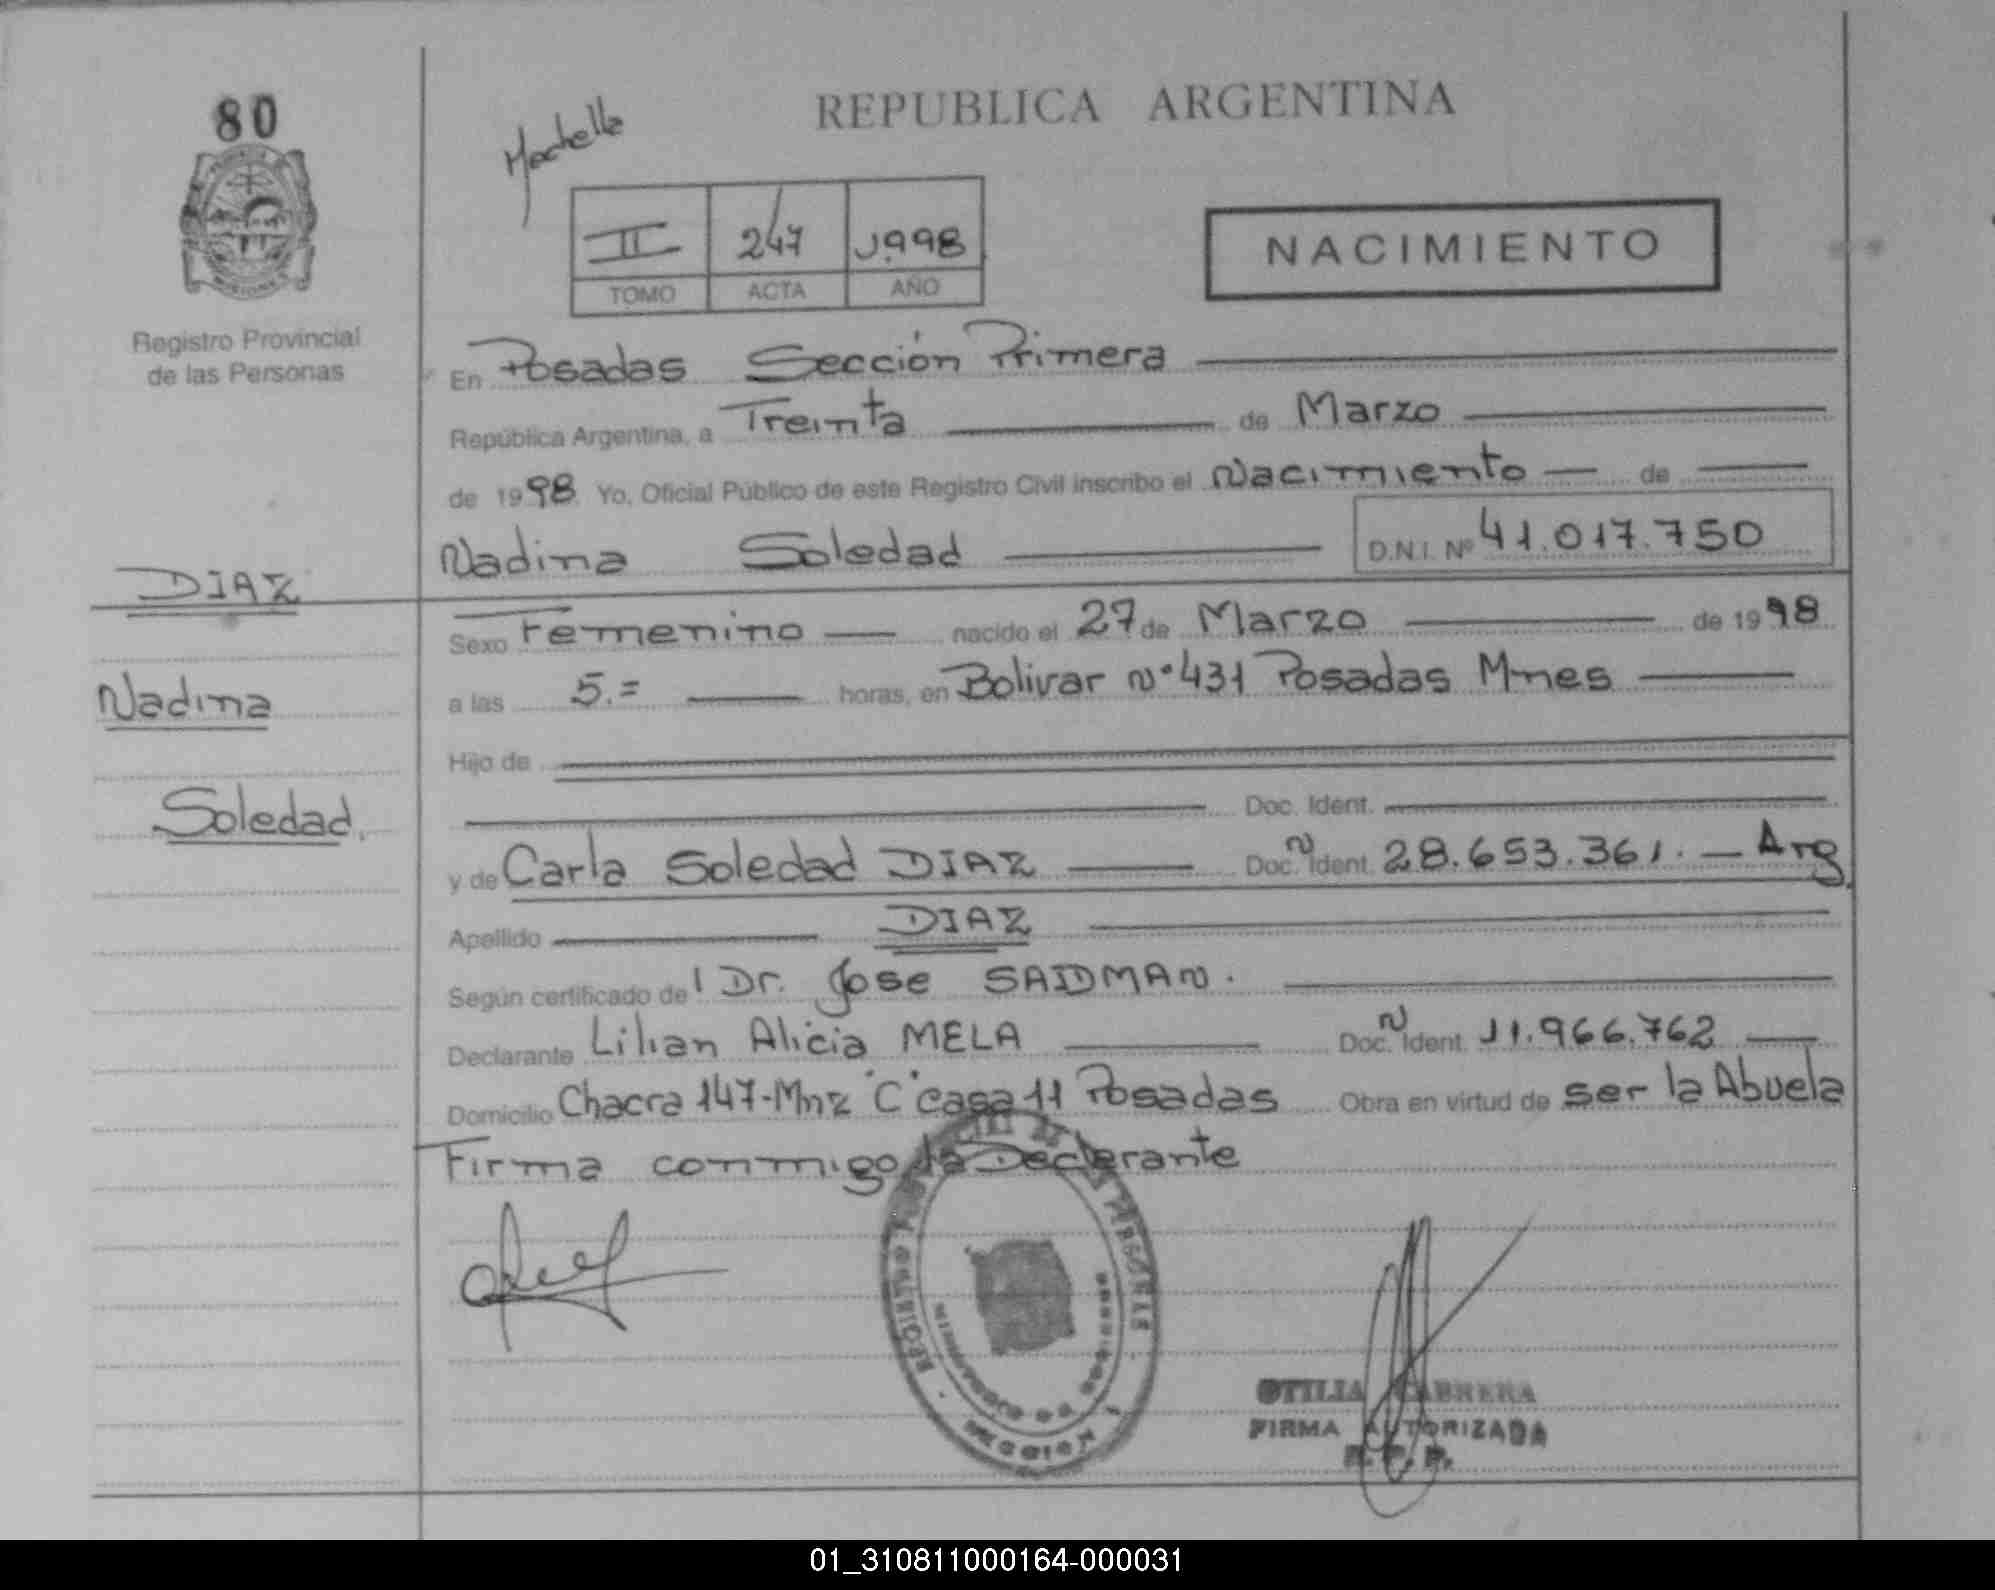 80
Mochello
REPUBLICA ARGENTINA
II 247 1.998
TOMO ACTA AÑO
NACIMIENTO
Registro Provincial
de las Personas
En Posadas Sección Primera
República Argentina, a Treinta de Marzo
de 1998. Yo, Oficial Público de este Registro Civil inscribo el Nacimiento de
Nadina Soledad D.N.I. Nº 41.017.750
DIAZ
Nadina
Soledad.
Sexo Femenino nacido el 27 de Marzo de 1998
a las 5.= horas, en Bolivar Nº 431 Posadas Mnes
Hijo de
Doc. Ident.
y de Carla Soledad DIAZ Doc. N Ident. 28.653.361. Arg.
Apellido DIAZ
Según certificado del Dr. Jose SAIDMAN.
Declarante Lilian Alicia MELA Doc. N Ident. 11.966.762
Domicilio Chacra 147-Mnz "C" casa 11 Posadas Obra en virtud de ser la Abuela
Firma conmigo la Declarante
OTILIA CABRERA
FIRMA AUTORIZADA
R.P.P.
01_310811000164-000031